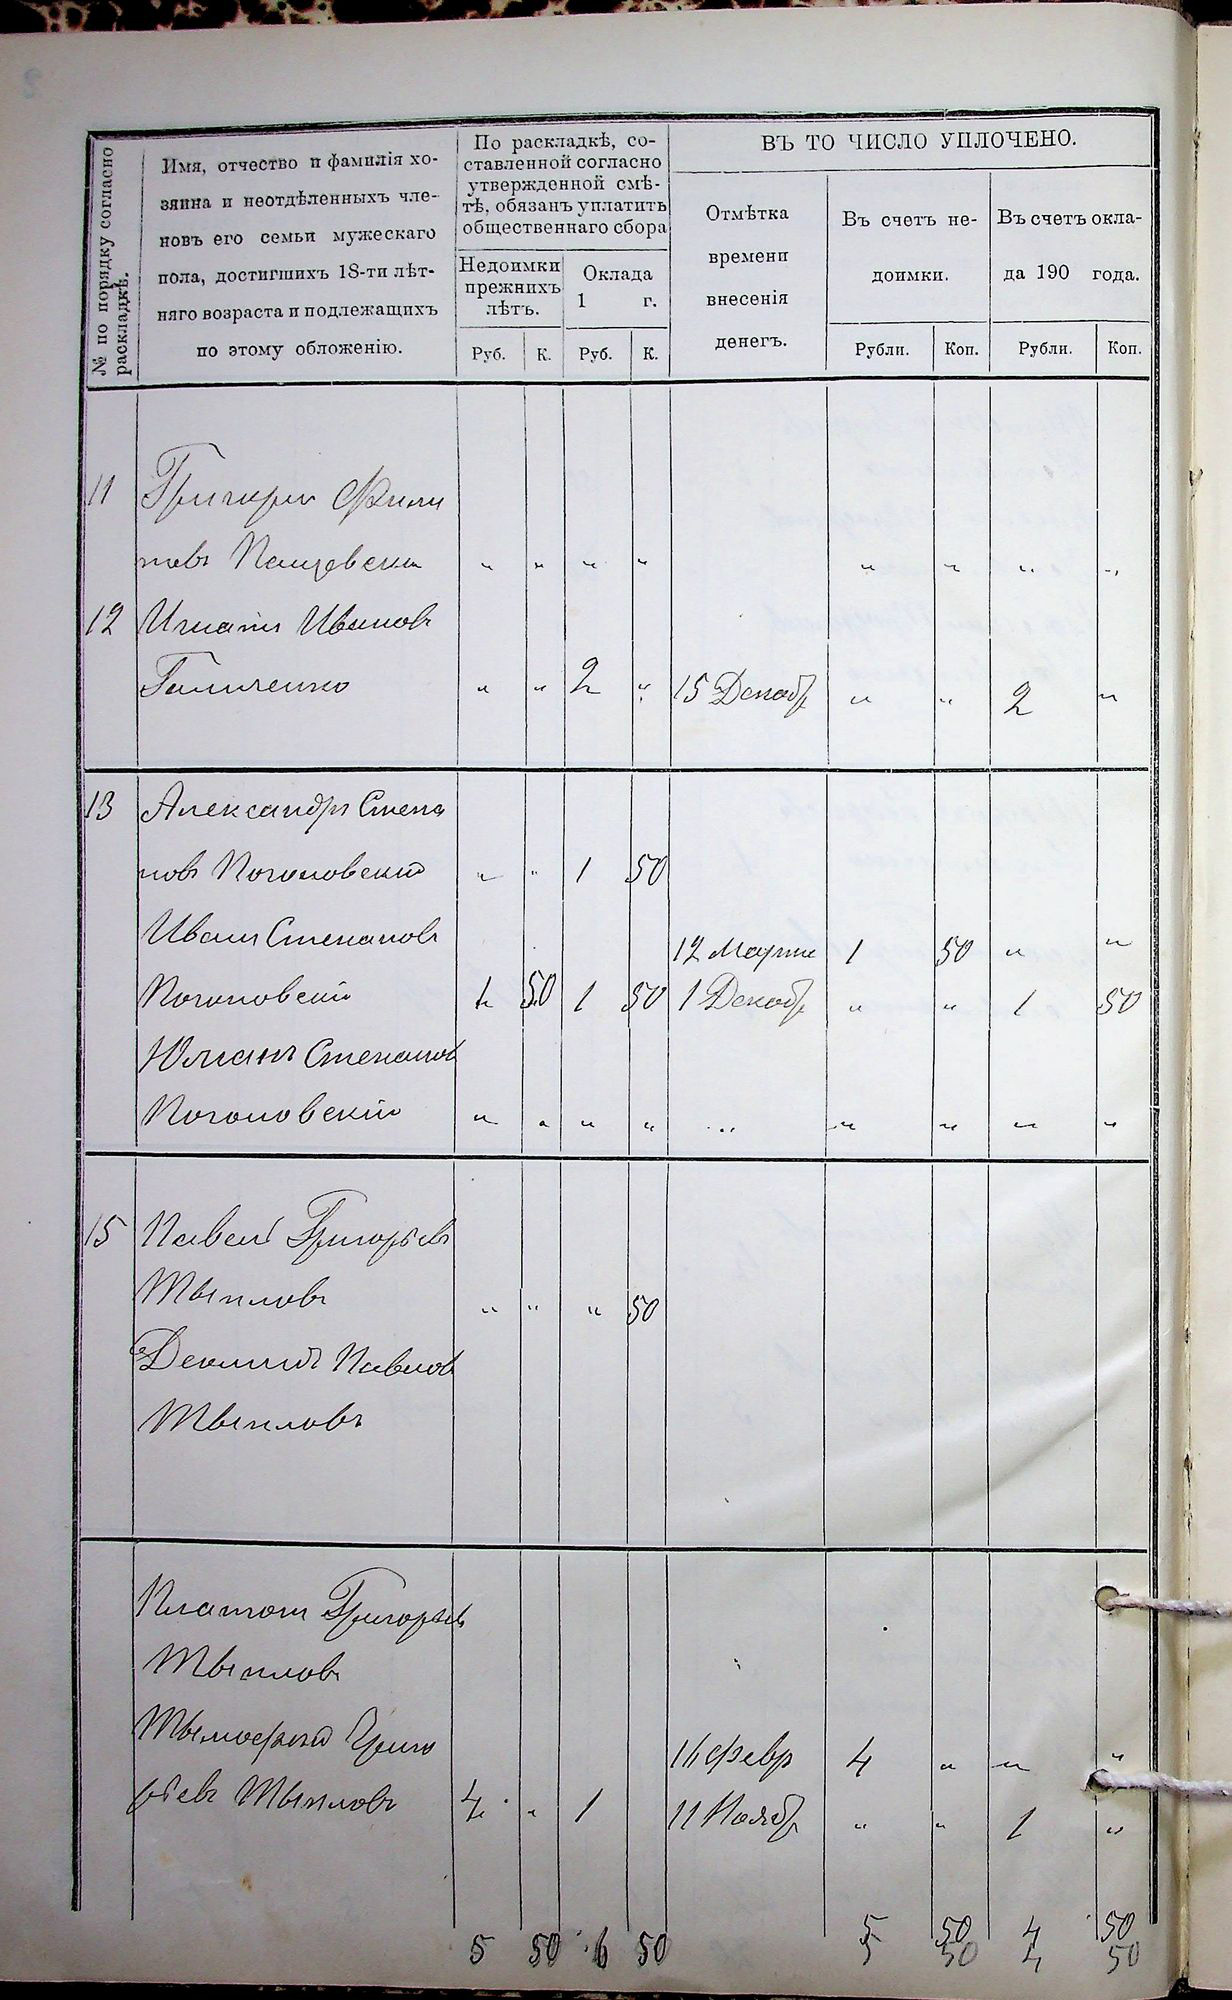 № по порядку согласно раскладкѣ.
Имя, отчество и фамилія хо-
зяина и неотдѣленныхъ чле-
новъ его семьи мужескаго
пола, достигшихъ 18-ти лѣт-
няго возраста и подлежащихъ
по этому обложенію.
По раскладкѣ, со-
ставленной согласно
утвержденной смѣ-
тѣ, обязанъ уплатить
общественнаго сбора
Недоимки
прежнихъ
лѣтъ.
Оклада
1 г.
Руб. К. Руб. К.
ВЪ ТО ЧИСЛО УПЛОЧЕНО.
Отмѣтка
времени
внесенія
денегъ.
Въ счетъ не-
доимки.
Въ счетъ окла-
да 190 года.
Рубли. Коп. Рубли. Коп.
11 Григорій Фили
повъ " " " " " " " "
12 Игнатій Ивановъ
" " 2 " 15 Декабр " " 2 "
13 Александръ Степа
новъ Погоновскій " " 1 50
Иванъ Степановъ
12 Марта 1 50 " "
Погоновскій 1 50 1 50 1 Декабр " " 1 50
Юліанъ Степановъ
Погоновскій " " " " " " " " "
15 Павелъ Григорьевъ
" " " 50
Павлов
Платонъ Григорьевъ
Григо
16 февр 4 " " "
рьевъ 4 " 1 11 Ноябр " " 1 "
5 50 4 50
5 50 6 50 5 50 4 50